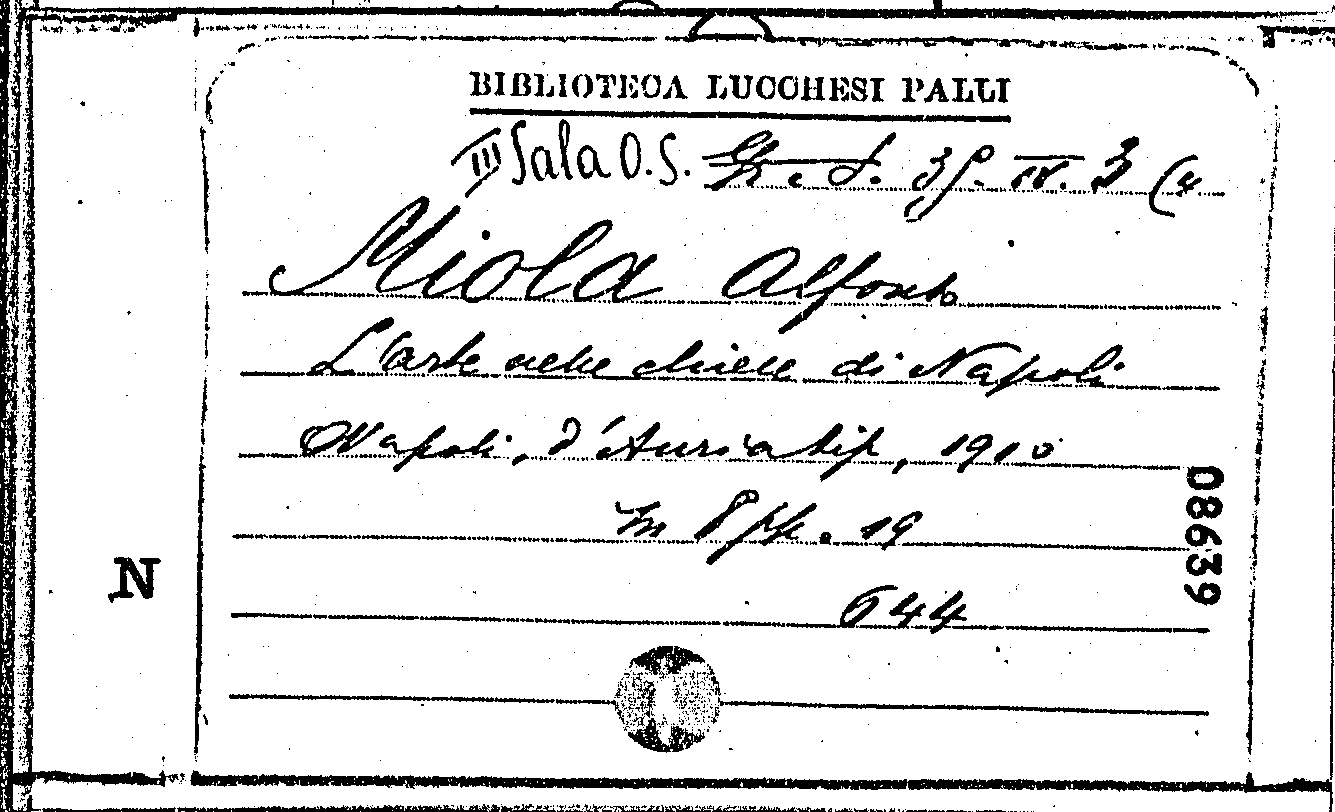 BIBLIOTECA LUCCHESI PALLI
III Sala O.S. Gr. S. 35. IV. 3 (4
Miola Alfonso
L'arte nelle chiese di Napoli
Napoli, d'Auria tip, 1910
In 8 pp. 19
644
08639
N